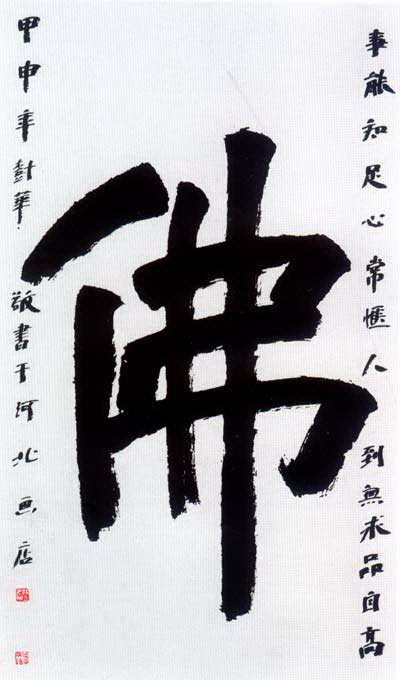 事能知足心常愜人到無求品自高
佛
甲申年封華敬書于河北画店